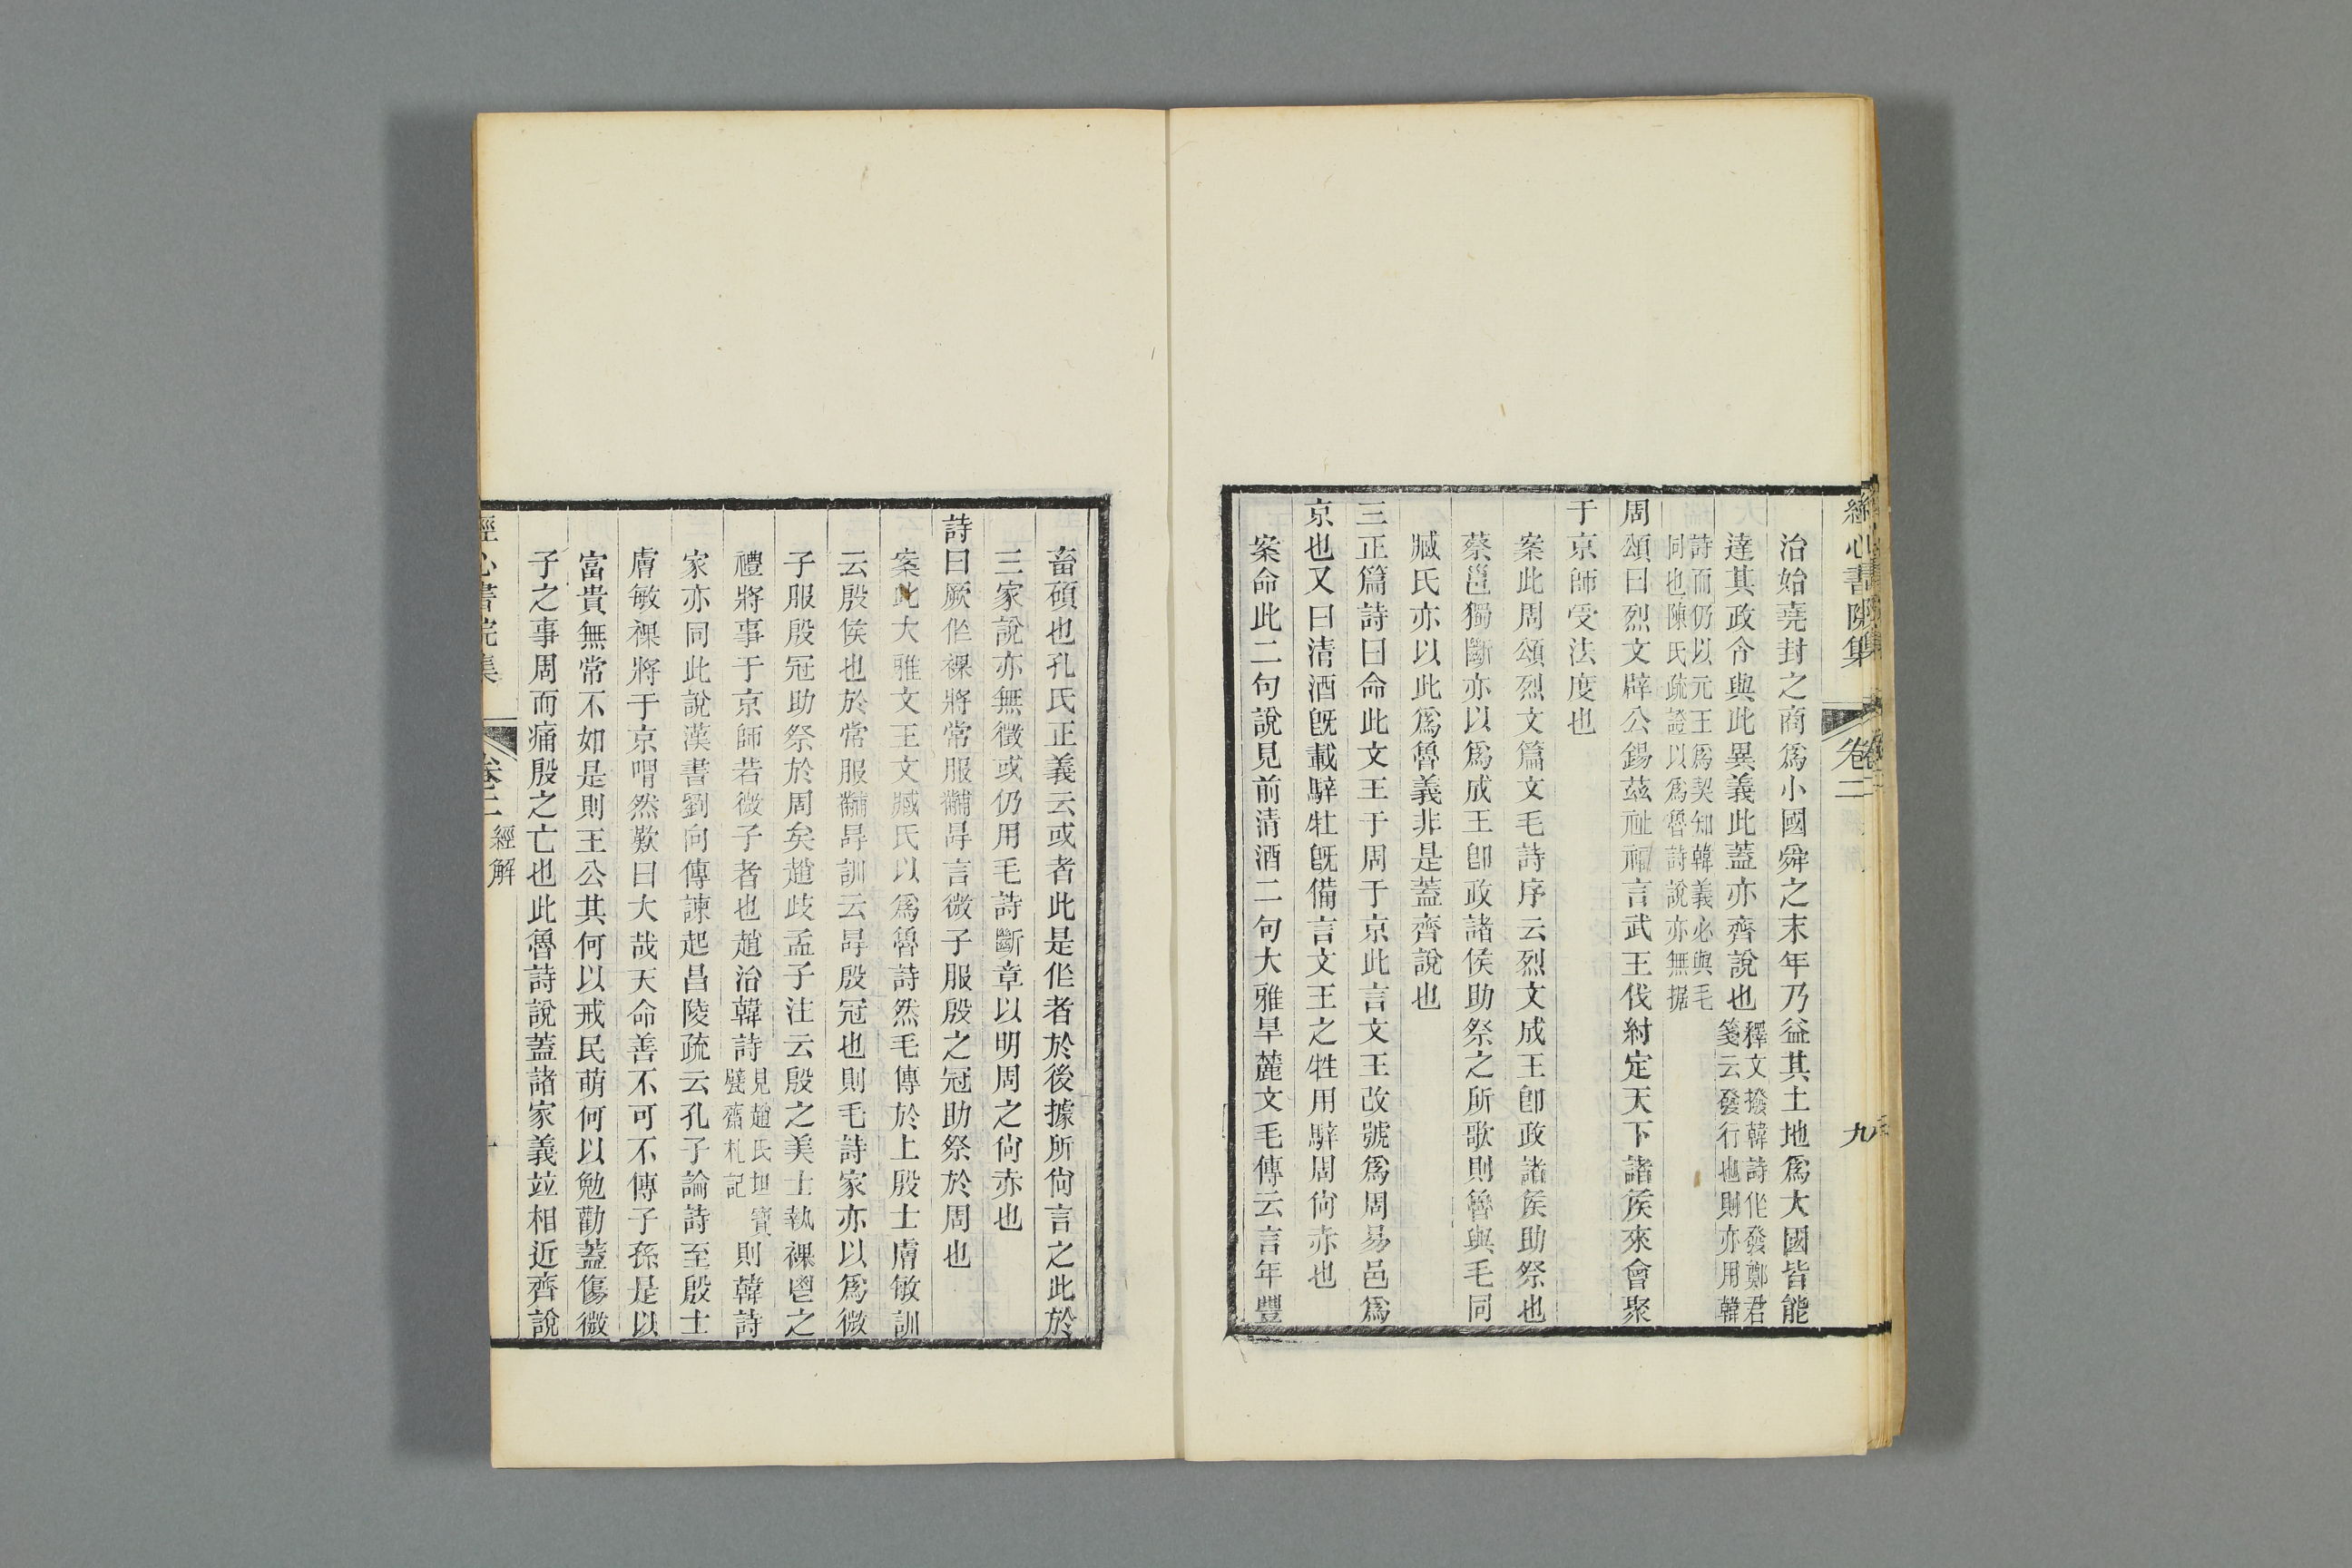 經心書院集 卷二 九
治始堯封之商爲小國舜之末年乃益其土地爲大國皆能
達其政令與此異義此蓋亦齊說也釋文撥韓詩作發鄭君箋云發行也則亦用韓
詩而仍以元王爲契知韓義必與毛同也陳氏疏證以爲魯詩說亦無據
周頌曰烈文辟公錫茲祉福言武王伐紂定天下諸侯來會聚
于京師受法度也
案此周頌烈文篇文毛詩序云烈文成王卽政諸侯助祭也
蔡邕獨斷亦以爲成王卽政諸侯助祭之所歌則魯與毛同
臧氏亦以此爲魯義非是蓋齊說也
三正篇詩曰命此文王于周于京此言文王改號爲周易邑爲
京也又曰清酒旣載騂牡旣備言文王之牲用騂周尙赤也
案命此二句說見前清酒二句大雅旱麓文毛傳云言年豐
畜碩也孔氏正義云或者此是作者於後據所尙言之此於
三家說亦無徵或仍用毛詩斷章以明周之尙赤也
詩曰厥作祼將常服黼冔言微子服殷之冠助祭於周也
案此大雅文王文臧氏以爲魯詩然毛傳於上殷士膚敏訓
云殷侯也於常服黼冔訓云冔殷冠也則毛詩家亦以爲微
子服殷冠助祭於周矣趙歧孟子注云殷之美士執祼鬯之
禮將事于京師若微子者也趙治韓詩見趙氏坦寶甓齋札記則韓詩
家亦同此說漢書劉向傳諫起昌陵疏云孔子論詩至殷士
膚敏祼將于京喟然歎曰大哉天命善不可不傳子孫是以
富貴無常不如是則王公其何以戒民萌何以勉勸蓋傷微
子之事周而痛殷之亡也此魯詩說蓋諸家義竝相近齊說
經心書院集 卷二 經解